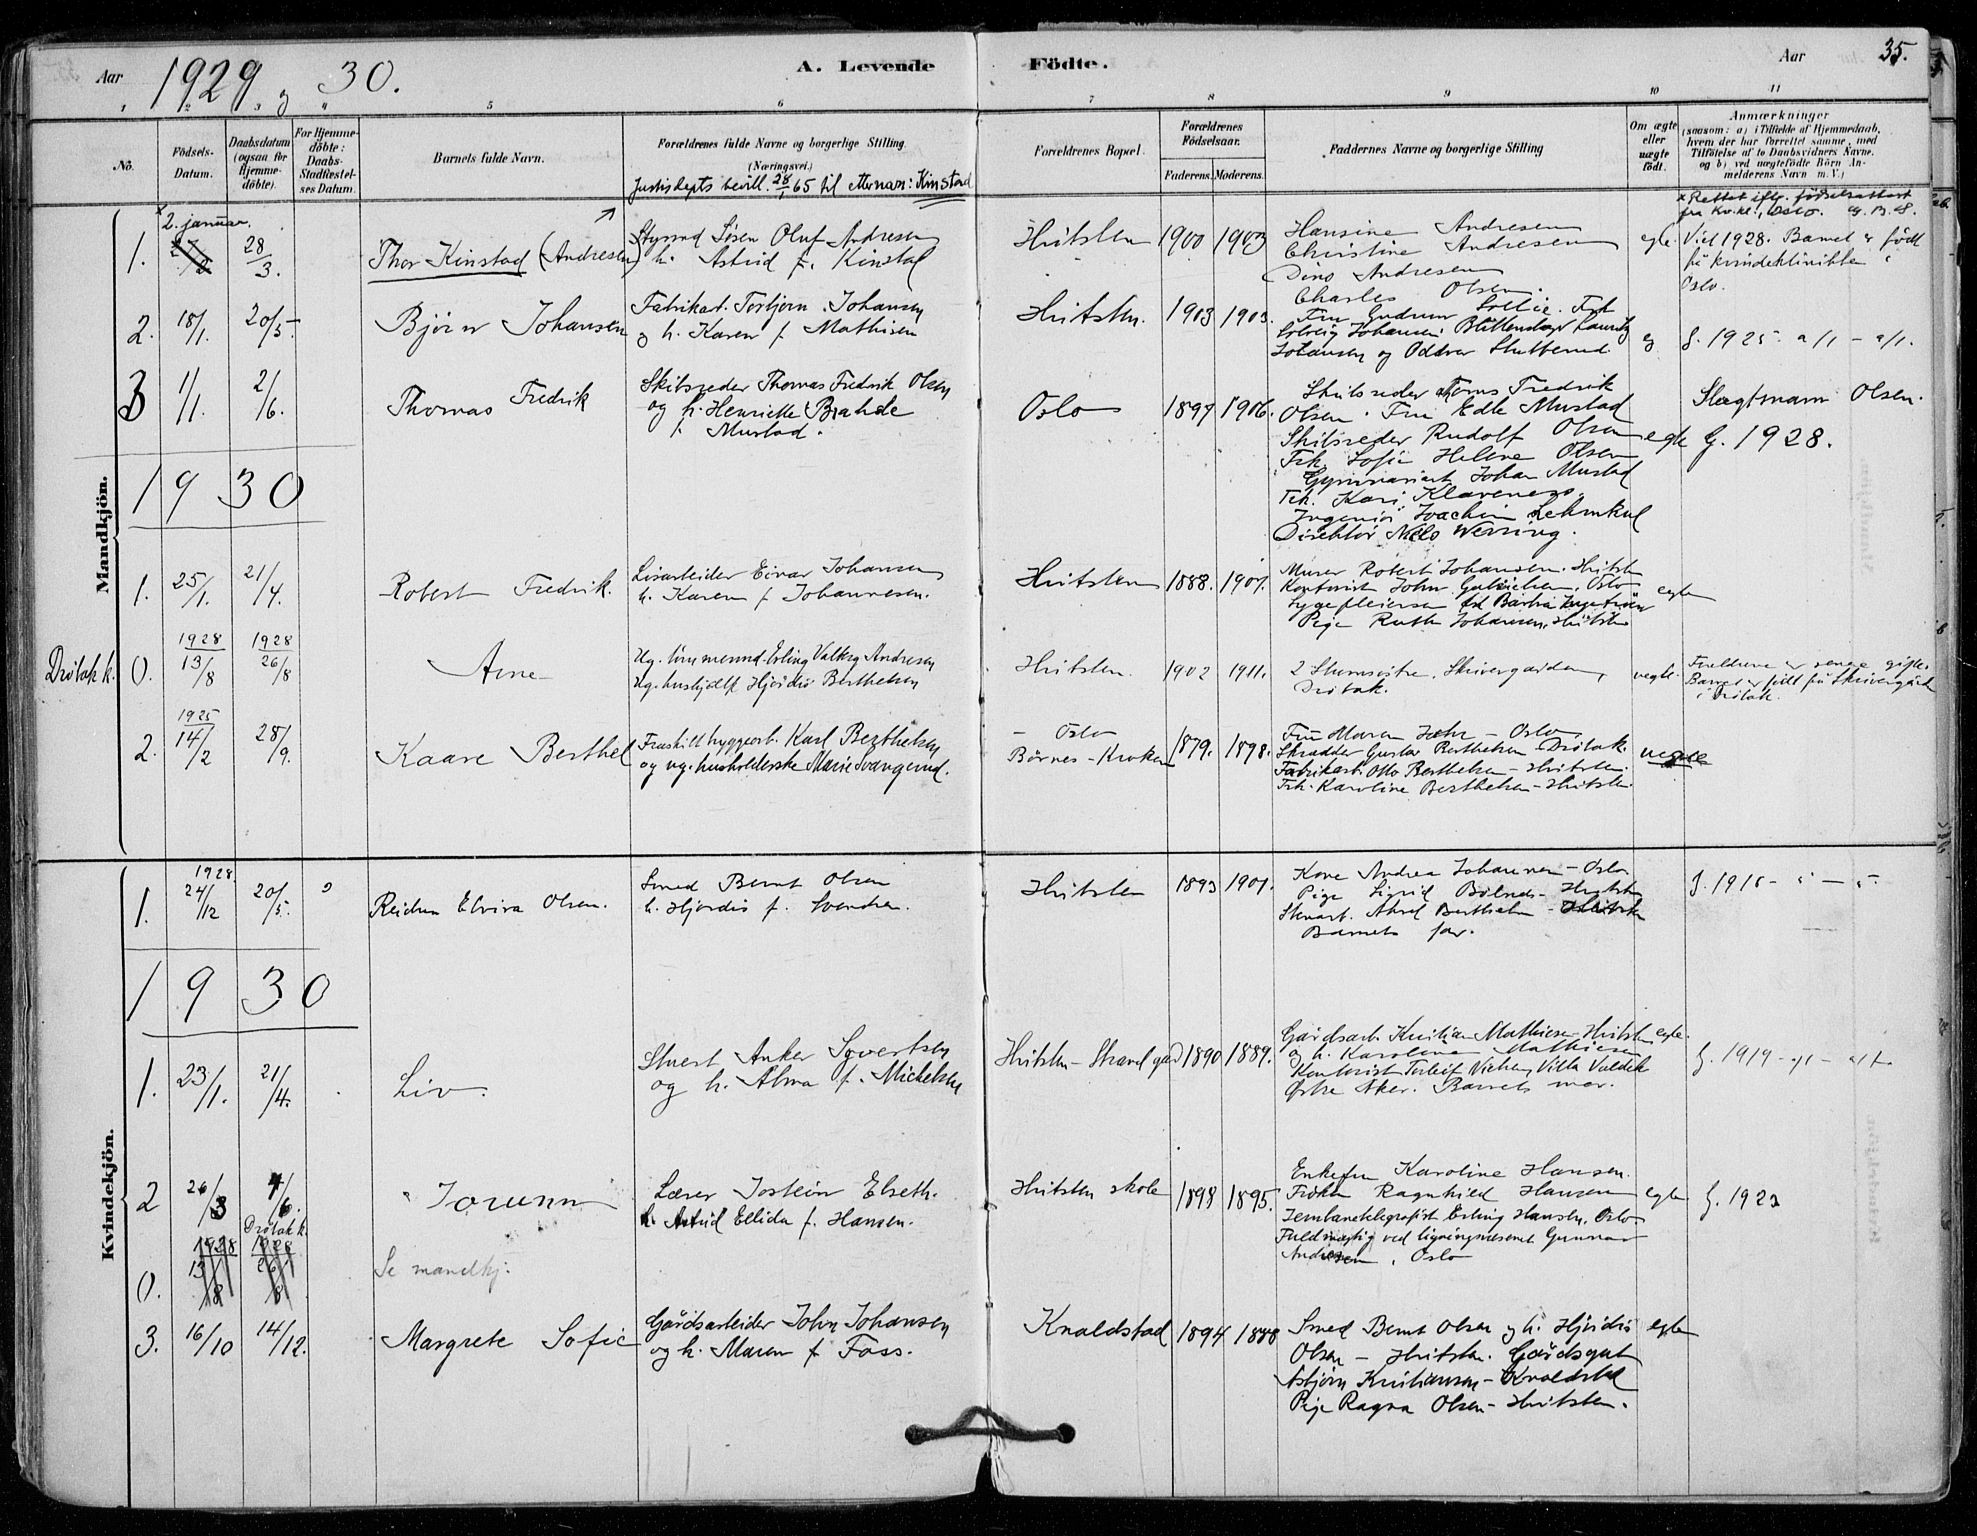 Aar 1929 og 30.
A. Levende Födte.
Aar 35.
1 2 3 4 5 6 7 8 9 10 11
No.
Födsels-Datum.
Daabsdatum (ogsaa for Hjemme-döbte).
For Hjemme-döbte: Daabs-Stadfæstel-ses Datum.
Barnets fulde Navn.
Forældrenes fulde Navne og borgerlige Stilling
(Næringsvei.)
Justisdepts bevill. 28/1 65 til etternavn: Kinstad
Forældrenes Bopæl.
Forældrenes Födselsaar.
Faderens. Moderens.
Faddernes Navne og borgerlige Stilling
Om ægte eller uægte födt.
Anmærkninger
(saasom: a) i Tilfælde af Hjemmedaab,
hvem der har forrettet samme, med
Tilföielse af to Daabsvidners Navne.
og b) ved uægtefödte Börn An-
melderens Navn m. V.)
Mandkjön.
1. x 2. januar. 28/3. Thor Kinstad (Andresen)
Styrmd Sösen Oluf Andresen
h. Astrid f. Kinstad
Hvitsten 1900 1903
Hansine Andresen
Christine Andresen
Dino Andresen
Charles Olsen.
egte.
x Rettet iflg. fødselsattest
fra Kv.kl., Oslo.
Viet 1928. Barnet er födt
på kvindeklinikken i
Oslo.
2. 18/1. 20/5. Björn Johansen
Fabrikarb. Torbjörn Johansen
og h. Karen f. Mathisen
Hvitsten. 1903 1903.
Fru Gudrun Sollie. Frk
Solveig Johansen. Blikkenslager Lauritz
Johansen og Oddvar Stubberud
eg.
g. 1925
3 1/1. 2/6. Thomas Fredrik
Skibsreder Thomas Fredrik Olsen
og h. Henriette
f. Mustad.
Oslo 1897 1906.
Skibsreder Thoms Fredrik
Olsen. Fru Edle Mustad
Skibsreder Rudolf Olsen
Frk Sofie Helene Olsen
Gymnasiast Johan Mustad
Frk. Kari Klaveness.
Ingeniör Joachim Lehmkul
Direktör Niels Werring.
egte
Slegtsnavn Olsen.
G. 1928.
1930
1. 25/1. 21/4. Robert Fredrik.
Lösarbeider Einar Johansen
h. Karen f. Johannesen.
Hvitsten 1888. 1907.
Murer Robert Johansen. Hvitst
Kontorist John Gabrielsen, Oslo
Sygepleierske
Pige Ruth Johansen, Hvitsten
egte
Dröbak k. 0. 1928 13/8 1928 26/8 Arne
Ug. Erling Andresen
Ug. hushjelp Hjördis Berthelsen
Hvitsten. 1902 1911.
2 Skrivergarden,
Dröbak.
uegte.
Foreldrene er senere gifte.
Barnet er född på Skrivergården
i Dröbak.
2. 1925 14/2 28/9. Kaare Berthel
Fraskilt byggearb. Karl Berthelsen
og ug. husholderske Marie Svangerud.
Oslo
Börnes-Kroken 1879. 1898.
Fru Maren – Oslo.
Skradder Gustav Berthelsen – Dröbak.
Fabrikarb. Otto Berthelsen – Hvitsten.
Frk. Karoline Berthelsen – Hvitsten.
uegte
Kvindekjön.
1. 1928. 24/12 20/5. Reidun Elvira Olsen.
Smed Bernt Olsen
h. Hjördis f. Svendsen.
Hvitsten 1893 1901.
Kone Andrea Johannesen – Oslo
Pige Sigrid – Hvitsten
Berthelsen – Hvitsten
Barnets far.
g. 1916
1930
1. 23/1. 21/4. Liv.
Anker Syvertsen
og h. Alma f. Michelsen
Hvitsten – Strand gård 1890 1889.
Gårdsarb. Kristian Mathiesen – Hvitsten
og h. Karoline Mathiesen
Kontorist Torleif Nielsen, Villa
Östre Aker. Barnets mor.
egte.
g. 1919
2 26/3 4/6. Jorunn
Lærer Jostein Elseth.
h. Astrid Ellida f. Hansen.
Hvitsten skole 1898 1895.
Enkefru Karoline Hansen.
Fröken Ragnhild Hansen
Jernbanetelegrafist Erling Hansen, Oslo.
Fuldmægtig ved ligningsvæsenet Gunnar
Andresen, Oslo
egte
g. 1923
0. Dröbak k. 1928 13/8 1928 26/8 Se mandkj.
3. 16/10 14/12. Margrete Sofie
Gårdsarbeider John Johansen
og h. Maren f. Foss.
Knaldstad 1894
Smed Bernt Olsen og h. Hjördis
Olsen – Hvitsten. Gårdsgut
Asbjörn Kristiansen – Knaldstad
Pige Ragna Olsen – Hvitsten.
egte